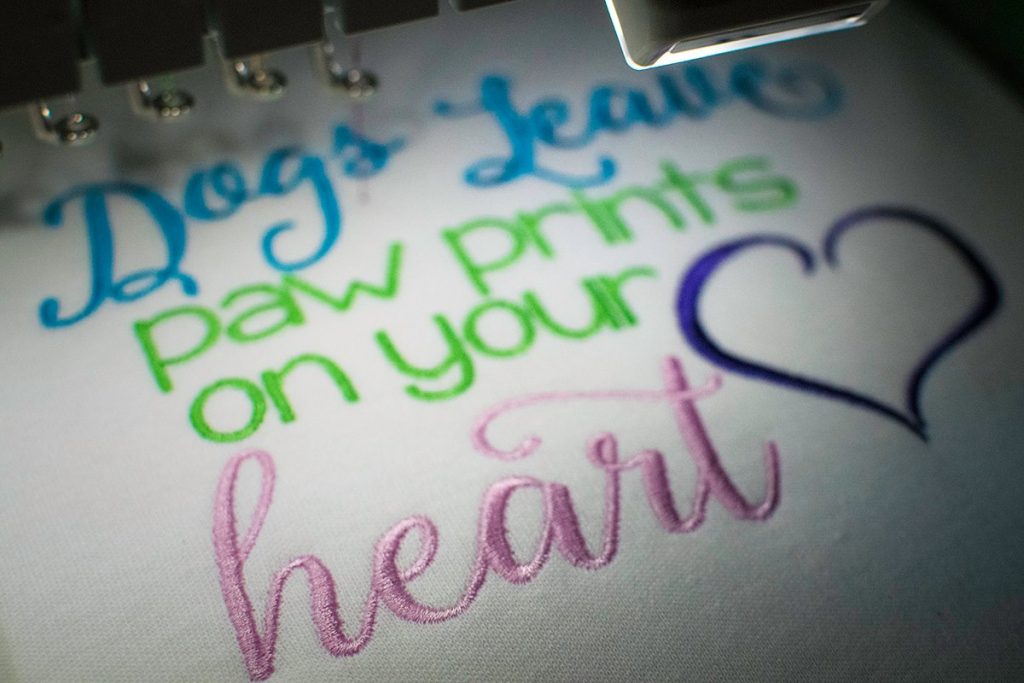 Dogs Leave
paw prints
on your
heart